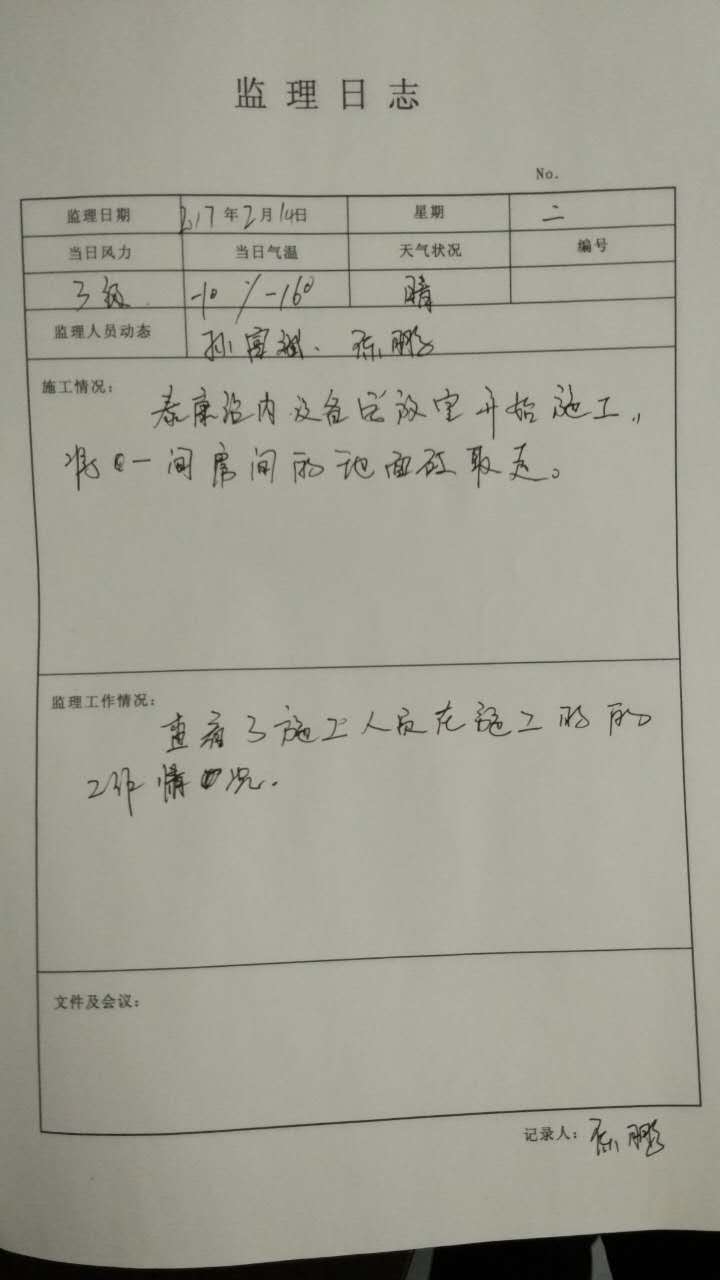 监理日志
No.
监理日期 2017年2月14日 星期 二
当日风力 当日气温 天气状况 编号
3级 -1° / -16° 晴
监理人员动态 孙富斌、陈鹏
施工情况:
泰康院内设备存放室开始施工,
将一间房间的地面砖取走。
监理工作情况:
查看了施工人员在施工时的
工作情况.
文件及会议:
记录人: 陈鹏